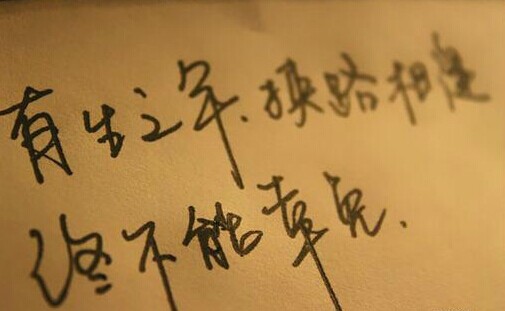 有生之年、狭路相逢
终不能幸免.